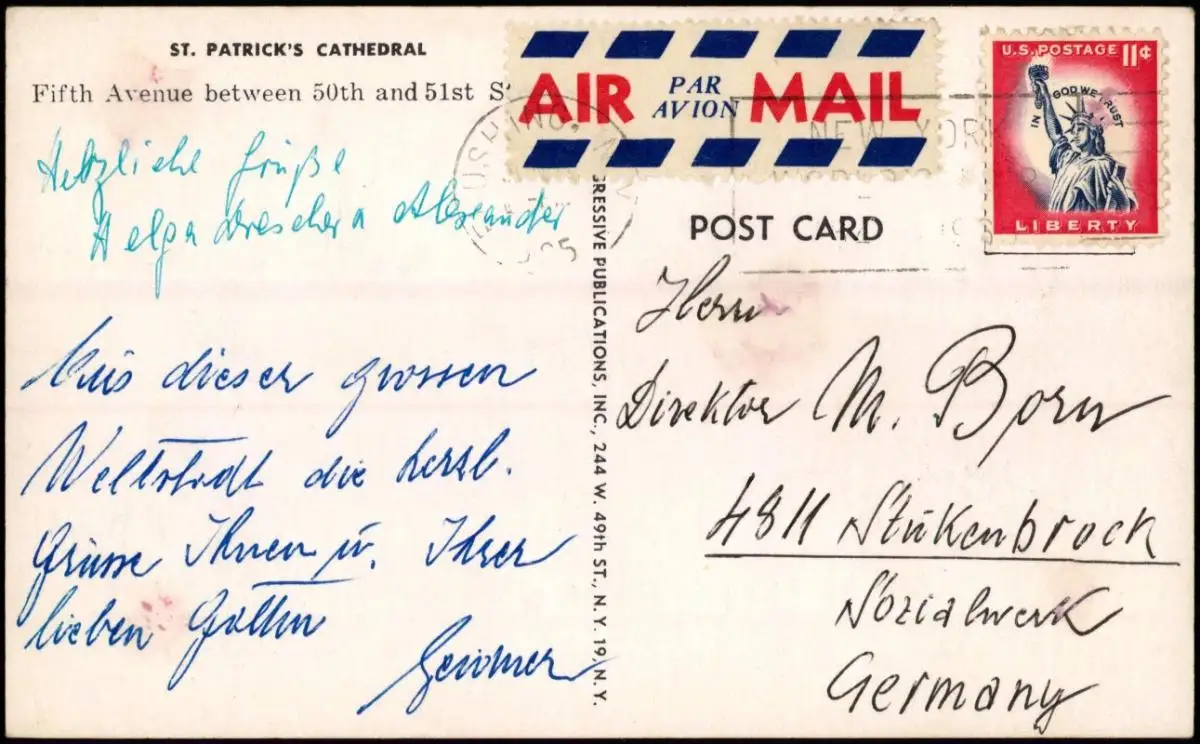 ST. PATRICK'S CATHEDRAL
Fifth Avenue between 50th and 51st
Herzliche Grüße
Helga Alexander
Aus dieser grossen
Weltstadt die herzl.
Grüsse Ihnen u. Ihrer
lieben Gattin
RESSIVE PUBLICATIONS, INC., 244 W. 49th ST., N. Y. 19, N. Y.
AIR PAR AVION MAIL
NEW YORK
U.S. POSTAGE 11¢
IN GOD WE TRUST
LIBERTY
POST CARD
Herrn
Direktor M. Born
4811 Stukenbrock
Sozialwerk
Germany